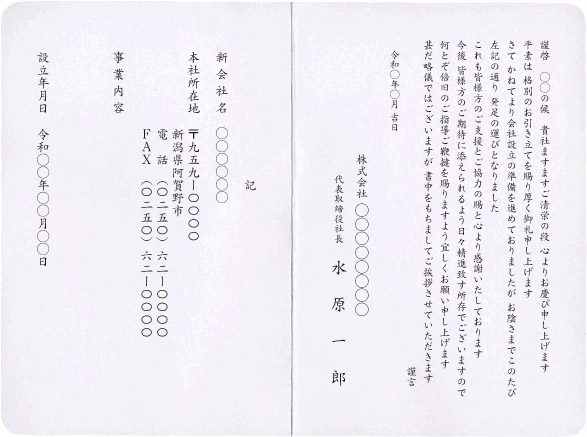 謹啓 〇〇の候 貴社ますますご清栄の段 心よりお慶び申し上げます
平素は 格別のお引き立てを賜り厚く御礼申し上げます
さて かねてより会社設立の準備を進めておりましたが お陰さまでこのたび
左記の通り 発足の運びとなりました
これも皆様方のご支援とご協力の賜と 心より感謝いたしております
今後 皆様方のご期待に添えられるよう日々精進致す所存でございますので
何とぞ倍旧のご指導ご鞭撻を賜りますよう宜しくお願い申し上げます
甚だ略儀ではございますが 書中をもちましてご挨拶させていただきます
謹言
令和〇年〇月 吉日
株式会社 〇〇〇〇〇〇〇
代表取締役社長 水原一郎
記
新会社名 〇〇〇〇〇〇
本社所在地 〒九五九ー〇〇〇〇
新潟県阿賀野市
電話 (〇二五〇) 六二ー〇〇〇〇
FAX (〇二五〇) 六二ー〇〇〇〇
事業内容
設立年月日 令和〇〇年〇〇月〇〇日